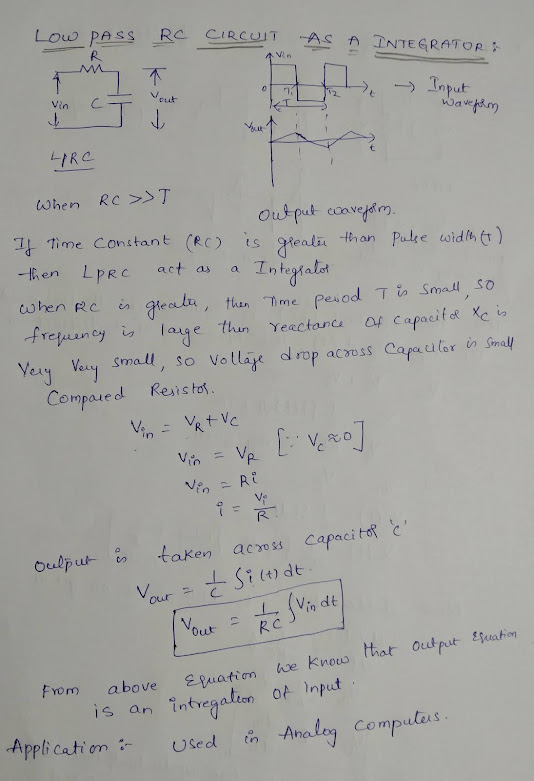 LOW PASS RC CIRCUIT AS A INTEGRATOR :
R
Vin C Vout
LPRC
Vin
0 T1 T2 t
T
→ Input
waveform
Vout
t
When RC >> T
Output waveform.
If Time Constant (RC) is greater than Pulse width (T)
then LPRC act as a Integrator
When RC is greater, then Time period T is small, so
frequency is large then reactance of capacitor Xc is
Very Very small, so Voltage drop across Capacitor is small
Compared Resistor.
Vin = VR + VC
Vin = VR [∵ Vc ≈ 0]
Vin = Ri
i = Vi/R
Output is taken across capacitor 'c'
Vout = 1/C ∫ i(t) dt.
Vout = 1/RC ∫ Vin dt
From above Equation we know that output Equation
is an intregation of Input.
Application :- Used in Analog Computers.